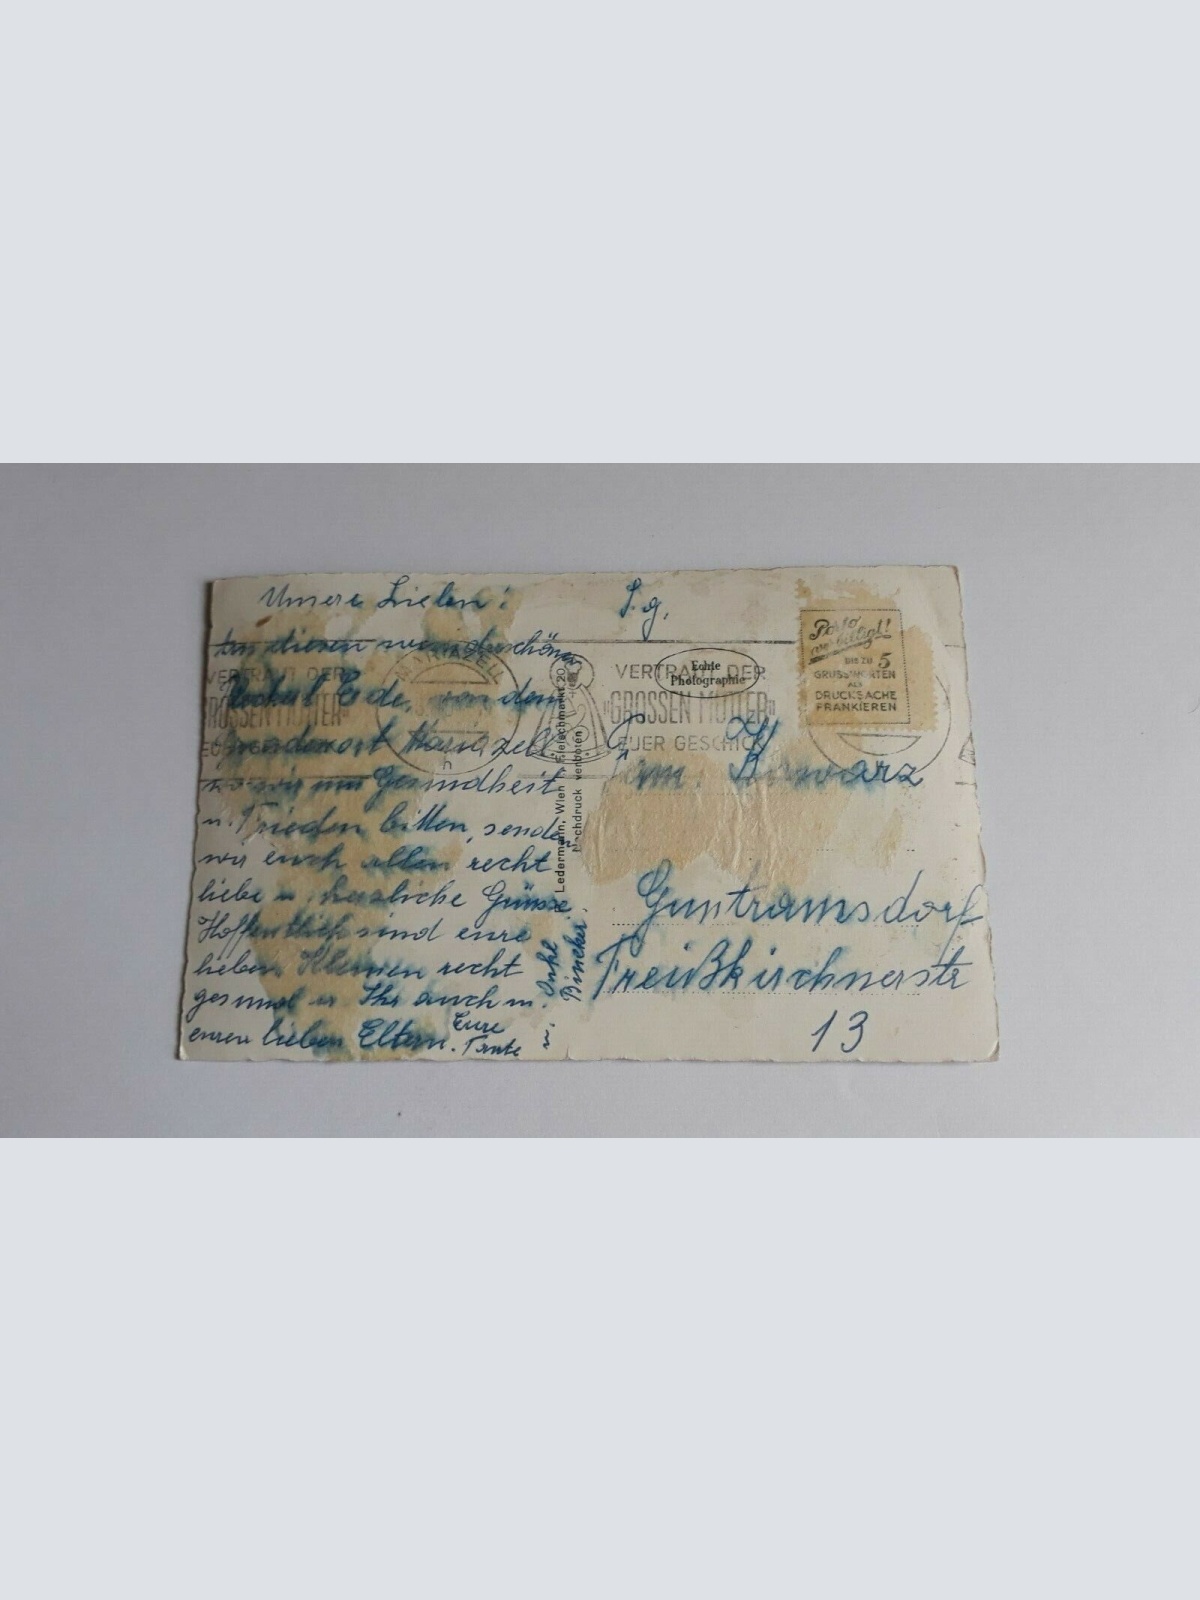 Unsere Lieben!
An diesen wunderschönen
Fleckerl Erde, von dem
Gnadenort Mariazell
wo wir um Gesundheit
u. Frieden bitten, senden
wir euch allen recht
liebe u. herzliche Grüsse.
Hoffentlich sind eure
lieben Kleinen recht
gesund u. Ihr auch u.
euren lieben Eltern.
Eure
Tante
u.
Onkel
MARIAZELL
VERTRAUT DER
GROSSEN MUTTER
VERTRAUT DER
"GROSSEN MUTTER"
EUER GESCHICK
Ledermann, Wien I, Fleischmarkt 20
Nachdruck verboten
Echte
Photographie
Porto
verbilligt!
BIS ZU 5
GRUSSWORTEN
ALS
DRUCKSACHE
FRANKIEREN
S. g.
Fam.
Guntramsdorf
13